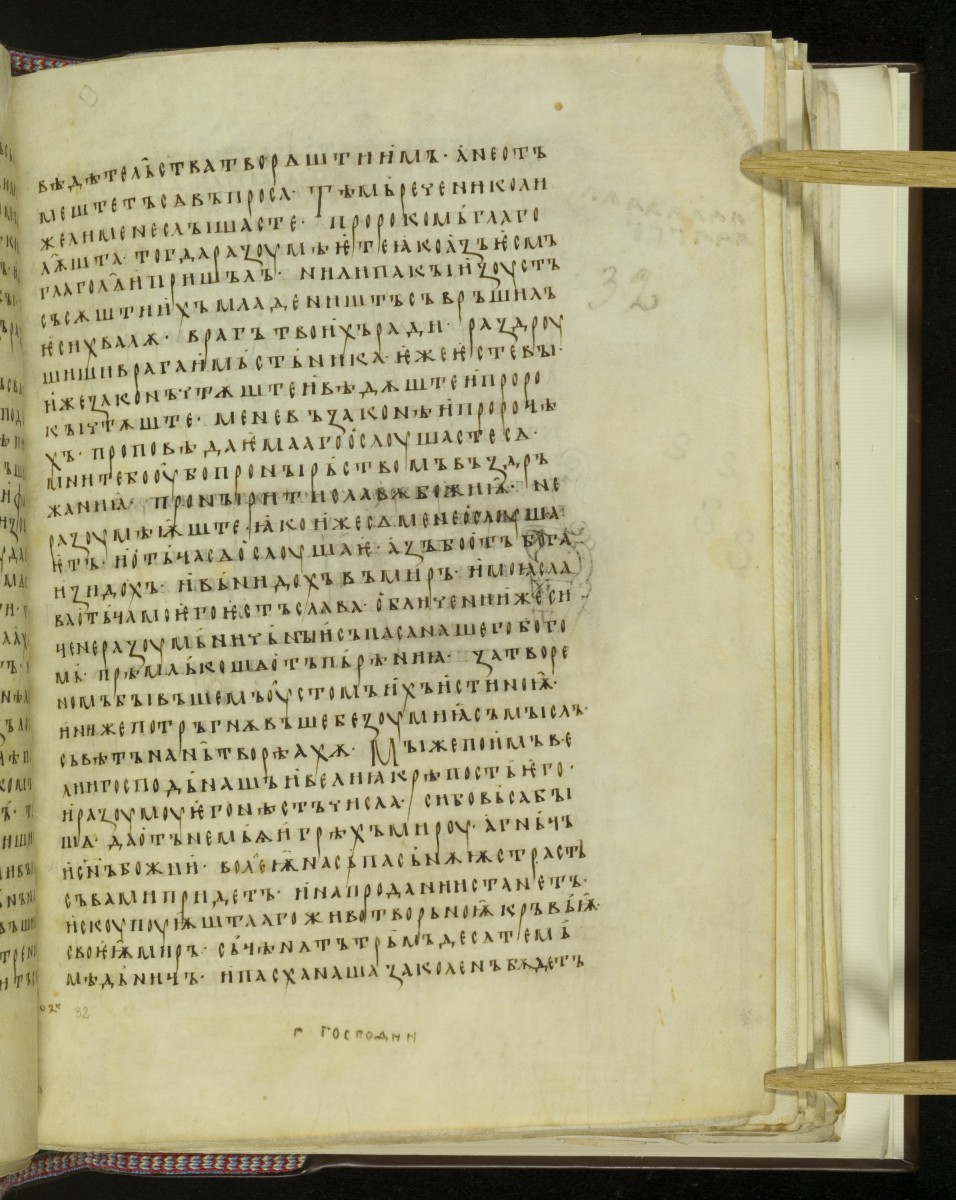 вѣдѣтельства твораштиимъ· а не отъ
мештетъ сѧ въпроса· Тѣмь рече николи
же ли мене слышасте· пророкомь глаго
лѭшта· тогда разоумѣите ꙗко азъ ѥсмъ
глаголѧи пришьлъ· ни ли пакы из оустъ
съсѫштиихъ младеништь съврьшилъ
ѥси хвалѫ· врагъ твоихъ ради· раздроу
шиши врага и мьстьника· иже ѥсте вы·
иже законъ чтѫште и вѣдѫште и проро
кы чтѫште· мене въ законѣ и пророчѣ
хъ· проповѣдаѥмааго ослоушасте сѧ·
мните бо оубо проныръствомъ въздръ
жаниꙗ· проныритьно славѫ божиѭ· не
разоумѣѭште· ꙗко иже сѧ мене ослоуша
ѥтъ· и отьча сѧ ослоушаѥ· азъ бо отъ бога
изидохъ· и вьнидохъ въ миръ· и моꙗ сла
ва отьча моѥго ѥстъ слава· обличении же си
че неразоумьничьныи съпаса нашего бого
мь· прѣмлькошѧ отъ пьрѣниꙗ· затворе
номъ бывъшемъ оустомъ ихъ истиноѭ·
ни иже потръгнѫвъше безоумиꙗ съмыслъ·
съвѣтъ нань творѣахѫ· Мы же поимъ ве
лии господь нашъ и велиꙗ крѣпость ѥго·
и разоумоу ѥго нѣстъ числа· си бо вьсѧ бы
шѧ· да отънемьѧи грѣхъ мироу· агньчь
и с҃нъ божии· волеѭ на съпасьнѫѭ страсть
съ вами придетъ· и на продании станетъ·
искоупоуѭштааго животворьноѭ кръвьѭ·
своѥѭ миръ· сьченатъ трьмъ десатемь
мѣдьничь· и пасха наша заколенъ бѫдетъ
32
г господии
32